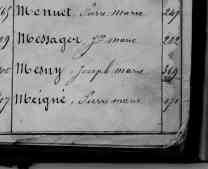 65 Menuet, Pierre marie 247
99 Messager, Jn marie 222
Mesny, Joseph marie 369
07 Meigné, Pierre marie 171